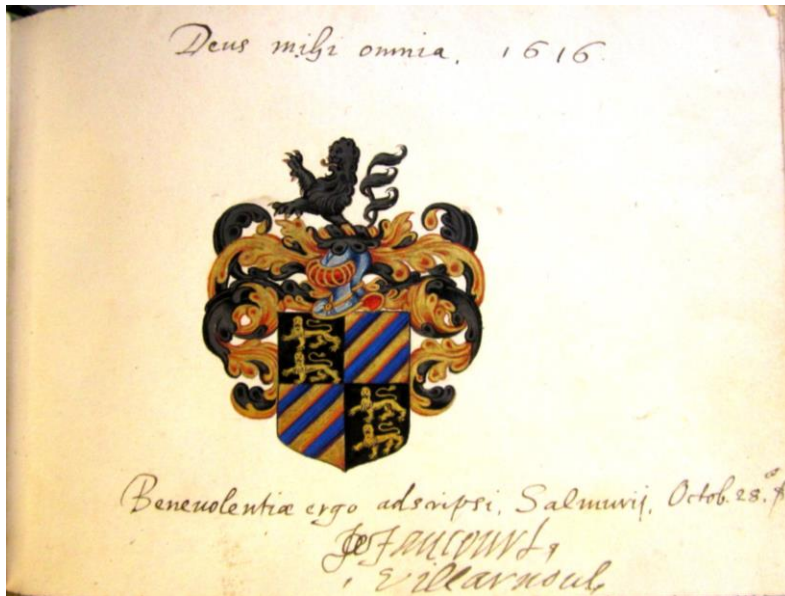 Deus mihi omnia. 1616.
Benevolentiæ ergo adscripsi, Salmurij, Octob. 28.
Villarnoul